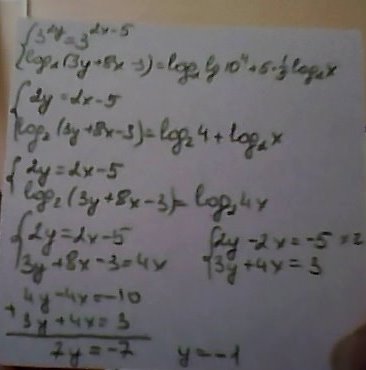 {3^{2y} = 3^{2x-5}
{log₂(3y+8x-3) = log₂ lg 10⁴ + 5·⅕ log₂x
{2y = 2x-5
{log₂(3y+8x-3) = log₂4 + log₂x
{2y = 2x-5
{log₂(3y+8x-3) = log₂4x
{2y = 2x-5
{3y+8x-3 = 4x
{2y-2x = -5 ×2
{3y+4x = 3
4y-4x = -10
+
3y+4x = 3
7y = -7 y = -1